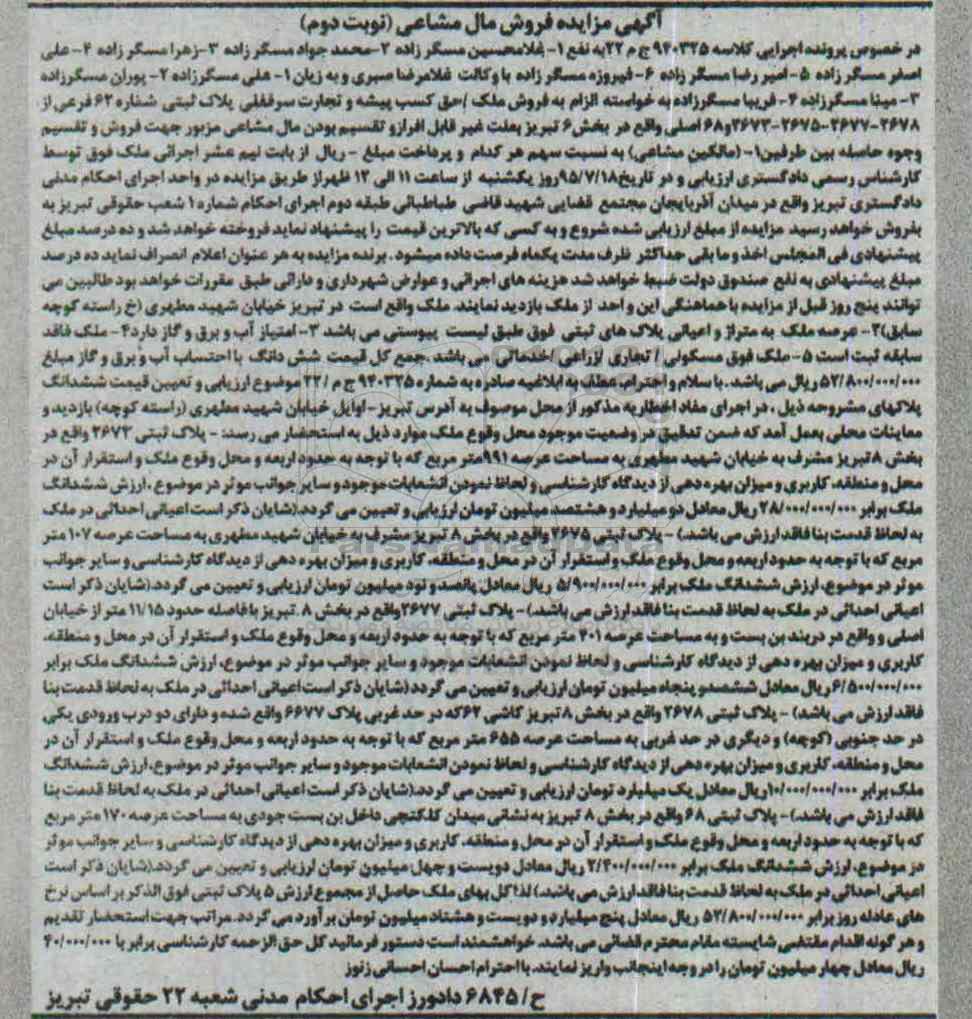 آگهی مزایده فروش مال مشاعی (نوبت دوم)
در خصوص پرونده اجرایی کلاسه ۹۴۰۳۲۵ ج م ۲۲ به نفع ۱- غلامحسین مسگر زاده ۲- محمد جواد مسگر زاده ۳- زهرا مسگر زاده ۴- علی
اصغر مسگر زاده ۵- امیر رضا مسگر زاده ۶- فیروزه مسگر زاده با وکالت غلامرضا صبری و به زیان ۱- علی مسگرزاده ۲- پوران مسگرزاده
۳- مینا مسگرزاده ۴- فریبا مسگرزاده به خواسته الزام به فروش ملک /حق کسب پیشه و تجارت سرقفلی پلاک ثبتی شماره ۶۲ فرعی از
۲۶۷۸-۲۶۷۷-۲۶۷۵-۲۶۷۳و۶۸ اصلی واقع در بخش ۶ تبریز بعلت غیر قابل افراز و تقسیم بودن مال مشاعی مزبور جهت فروش و تقسیم
وجوه حاصله بین طرفین۱-(مالکین مشاعی) به نسبت سهم هر کدام و پرداخت مبلغ - ریال از بابت نیم عشر اجرائی ملک فوق توسط
کارشناس رسمی دادگستری ارزیابی و در تاریخ۹۵/۷/۱۸روز یکشنبه از ساعت ۱۱ الی ۱۲ ظهر از طریق مزایده در واحد اجرای احکام مدنی
دادگستری تبریز واقع در میدان آذربایجان مجتمع قضایی شهید قاضی طباطبائی طبقه دوم اجرای احکام شماره ۱ شعب حقوقی تبریز به
بفروش خواهد رسید مزایده از مبلغ ارزیابی شده شروع و به کسی که بالاترین قیمت را پیشنهاد نماید فروخته خواهد شد و ده درصد مبلغ
پیشنهادی فی المجلس اخذ و مابقی حداکثر ظرف مدت یکماه فرصت داده میشود. برنده مزایده به هر عنوان اعلام انصراف نماید ده درصد
مبلغ پیشنهادی به نفع صندوق دولت ضبط خواهد شد هزینه های اجرائی و عوارض شهرداری و دارائی طبق مقررات خواهد بود طالبین می
توانند پنج روز قبل از مزایده با هماهنگی این واحد از ملک بازدید نمایند. ملک واقع است در تبریز خیابان شهید مطهری (خ راسته کوچه
سابق)۲- عرصه ملک به متراژ و اعیانی پلاک های ثبتی فوق طبق لیست پیوستی می باشد ۳- امتیاز آب و برق و گاز دارد۴- ملک فاقد
سابقه ثبت است ۵- ملک فوق مسکونی / تجاری /زراعی /خدماتی می باشد .جمع کل قیمت شش دانگ با احتساب آب و برق و گاز مبلغ
۵۲/۸۰۰/۰۰۰/۰۰۰ ریال می باشد . با سلام و احترام، عطف به ابلاغیه صادره به شماره ۹۴۰۳۲۵ ج م /۲۲ موضوع ارزیابی و تعیین قیمت ششدانگ
پلاکهای مشروحه ذیل ، در اجرای مفاد اخطاریه مذکور از محل موصوف به آدرس تبریز - اوایل خیابان شهید مطهری (راسته کوچه) بازدید و
معاینات محلی بعمل آمد که ضمن تدقیق در وضعیت موجود محل وقوع ملک موارد ذیل به استحضار می رسد: - پلاک ثبتی ۲۶۷۳ واقع در
بخش ۸ تبریز مشرف به خیابان شهید مطهری به مساحت عرصه ۹۹۱متر مربع که با توجه به حدود اربعه و محل وقوع ملک و استقرار آن در
محل و منطقه، کاربری و میزان بهره دهی از دیدگاه کارشناسی و لحاظ نمودن انشعابات موجود و سایر جوانب موثر در موضوع ، ارزش ششدانگ
ملک برابر ۲۸/۰۰۰/۰۰۰/۰۰۰ ریال معادل دو میلیارد و هشتصد میلیون تومان ارزیابی و تعیین می گردد.(شایان ذکر است اعیانی احداثی در ملک
به لحاظ قدمت بنا فاقد ارزش می باشد.) - پلاک ثبتی ۲۶۷۵ واقع در بخش ۸ تبریز مشرف به خیابان شهید مطهری به مساحت عرصه ۱۰۷ متر
مربع که با توجه به حدود اربعه و محل وقوع ملک و استقرار آن در محل و منطقه، کاربری و میزان بهره دهی از دیدگاه کارشناسی و سایر جوانب
موثر در موضوع، ارزش ششدانگ ملک برابر ۵/۹۰۰/۰۰۰/۰۰۰ ریال معادل پانصد و نود میلیون تومان ارزیابی و تعیین می گردد.(شایان ذکر است
اعیانی احداثی در ملک به لحاظ قدمت بنا فاقد ارزش می باشد.) - پلاک ثبتی ۲۶۷۷واقع در بخش ۸ تبریز با فاصله حدود ۱۱/۱۵ متر از خیابان
اصلی و واقع در دربند بن بست و به مساحت عرصه ۴۰۱ متر مربع که با توجه به حدود اربعه و محل وقوع ملک و استقرار آن در محل و منطقه،
کاربری و میزان بهره دهی از دیدگاه کارشناسی و لحاظ نمودن انشعابات موجود و سایر جوانب موثر در موضوع، ارزش ششدانگ ملک برابر
۶/۵۰۰/۰۰۰/۰۰۰ ریال معادل ششصد و پنجاه میلیون تومان ارزیابی و تعیین می گردد (شایان ذکر است اعیانی احداثی در ملک به لحاظ قدمت بنا
فاقد ارزش می باشد) - پلاک ثبتی ۲۶۷۸ واقع در بخش ۸ تبریز کاشی ۶۲که در حد غربی پلاک ۶۶۷۷ واقع شده و دارای دو درب ورودی یکی
در حد جنوبی (کوچه) و دیگری در حد غربی به مساحت عرصه ۶۵۵ متر مربع که با توجه به حدود اربعه و محل وقوع ملک و استقرار آن در
محل و منطقه، کاربری و میزان بهره دهی از دیدگاه کارشناسی و لحاظ نمودن انشعابات موجود و سایر جوانب موثر در موضوع، ارزش ششدانگ
ملک برابر ۱۰/۰۰۰/۰۰۰/۰۰۰ریال معادل یک میلیارد تومان ارزیابی و تعیین می گردد.(شایان ذکر است اعیانی احداثی در ملک به لحاظ قدمت بنا
فاقد ارزش می باشد.) - پلاک ثبتی ۶۸ واقع در بخش ۸ تبریز به نشانی میدان کاه‌کنجی داخل بن بست جودی به مساحت عرصه ۱۷۰ متر مربع
که با توجه به حدود اربعه و محل وقوع ملک و استقرار آن در محل و منطقه، کاربری و میزان بهره دهی از دیدگاه کارشناسی و سایر جوانب موثر
در موضوع، ارزش ششدانگ ملک برابر ۲/۴۰۰/۰۰۰/۰۰۰ ریال معادل دویست و چهل میلیون تومان ارزیابی و تعیین می گردد.(شایان ذکر است
اعیانی احداثی در ملک به لحاظ قدمت بنا فاقد ارزش می باشد.) لذا کل بهای ملک حاصل از مجموع ارزش ۵ پلاک ثبتی فوق الذکر بر اساس نرخ
های عادله روز برابر ۵۲/۸۰۰/۰۰۰/۰۰۰ ریال معادل پنج میلیارد و دویست و هشتاد میلیون تومان برآورد می گردد. مراتب جهت استحضار تقدیم
و هر گونه اقدام مقتضی شایسته مقام محترم قضائی می باشد. خواهشمند است دستور فرمائید کل حق الزحمه کارشناسی برابر با ۴۰/۰۰۰/۰۰۰
ریال معادل چهار میلیون تومان را در وجه اینجانب واریز نمایند. با احترام احسان احسانی زنوز
ح/۶۸۴۵ دادورز اجرای احکام مدنی شعبه ۲۲ حقوقی تبریز